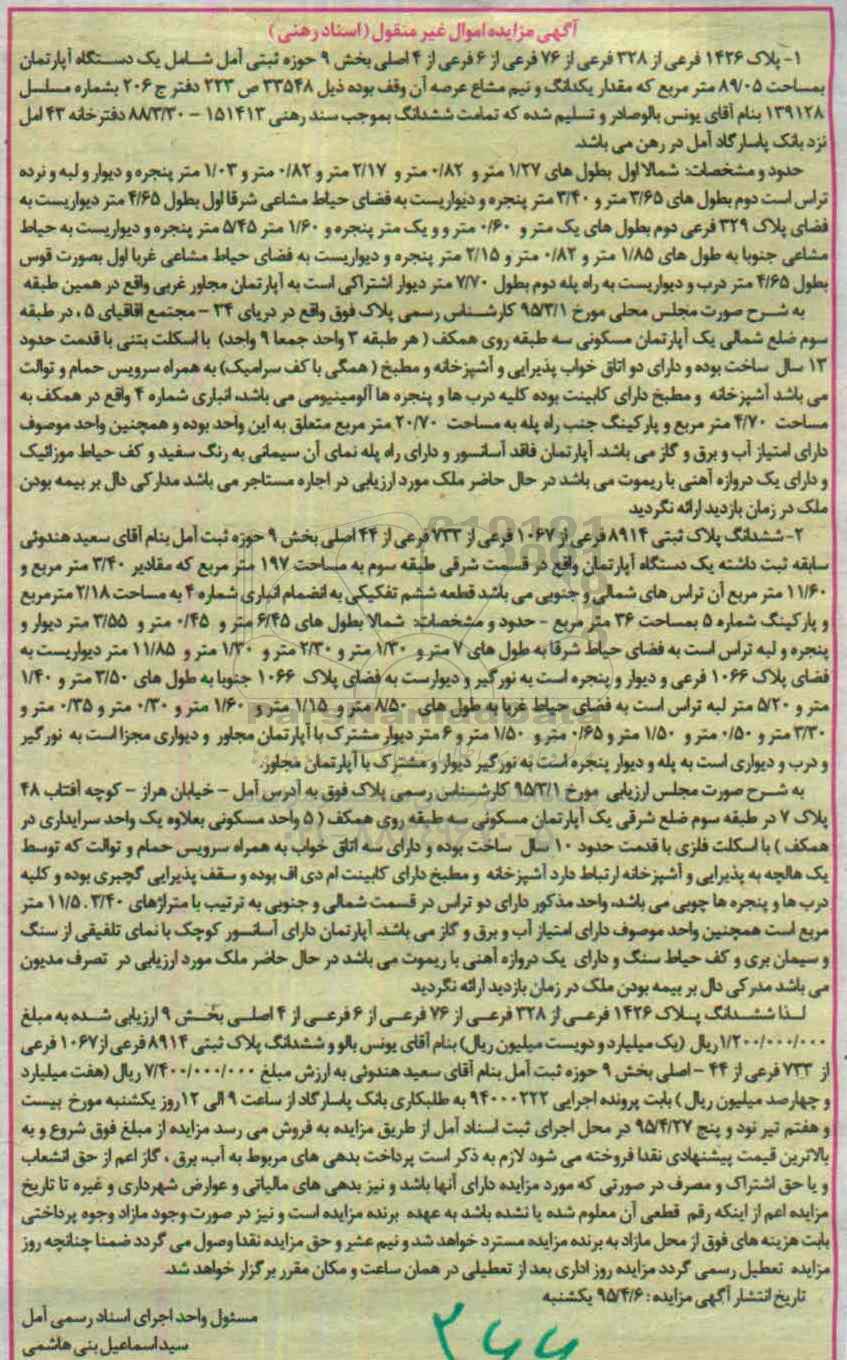 آگهی مزایده اموال غیر منقول (اسناد رهنی)
۱- پلاک ۱۴۲۶ فرعی از ۳۲۸ فرعی از ۷۶ فرعی از ۶ فرعی از ۴ اصلی بخش ۹ حوزه ثبتی آمل شامل یک دستگاه آپارتمان
بمساحت ۸۹/۰۵ متر مربع که مقدار یکدانگ و نیم مشاع عرصه آن وقف بوده ذیل ۳۳۵۴۸ ص ۲۲۳ دفتر ج ۲۰۶ بشماره مسلسل
۱۳۹۱۲۸ بنام آقای یونس بالو صادر و تسلیم شده که تمامت ششدانگ بموجب سند رهنی ۱۵۱۴۱۳ – ۸۸/۳/۳۰ دفترخانه ۴۳ امل
نزد بانک پاسارگاد آمل در رهن می باشد.
حدود و مشخصات: شمالا اول بطول های ۱/۲۷ متر و ۰/۸۲ متر و ۲/۱۷ متر و ۰/۸۲ متر و ۱/۰۳ متر پنجره و دیوار و لبه و نرده
تراس است دوم بطول های ۳/۶۵ متر و ۳/۴۰ متر پنجره و دیواریست به فضای حیاط مشاعی شرقا اول بطول ۴/۶۵ متر دیواریست به
فضای پلاک ۳۲۹ فرعی دوم بطول های یک متر و ۰/۶۰ متر و و یک متر پنجره و ۱/۶۰ متر ۵/۴۵ متر پنجره و دیواریست به حیاط
مشاعی جنوبا به طول های ۱/۸۵ متر و ۰/۸۲ متر و ۲/۱۵ متر پنجره و دیواریست به فضای حیاط مشاعی غربا اول بصورت قوس
بطول ۴/۶۵ متر درب و دیواریست به راه پله دوم بطول ۷/۷۰ متر دیوار اشتراکی است به آپارتمان مجاور غربی واقع در همین طبقه
به شرح صورت مجلس محلی مورخ ۹۵/۳/۱ کارشناس رسمی پلاک فوق واقع در دریای ۲۴ – مجتمع اقاقیای ۵ ، در طبقه
سوم ضلع شمالی یک آپارتمان مسکونی سه طبقه روی همکف ( هر طبقه ۳ واحد جمعا ۹ واحد) با اسکلت بتنی با قدمت حدود
۱۳ سال ساخت بوده و دارای دو اتاق خواب پذیرایی و آشپزخانه و مطبخ ( همگی با کف سرامیک) به همراه سرویس حمام و توالت
می باشد آشپزخانه و مطبخ دارای کابینت بوده کلیه درب ها و پنجره ها آلومینیومی می باشد، انباری شماره ۴ واقع در همکف به
مساحت ۴/۷۰ متر مربع و پارکینگ جنب راه پله به مساحت ۲۰/۷۰ متر مربع متعلق به این واحد بوده و همچنین واحد موصوف
دارای امتیاز آب و برق و گاز می باشد. آپارتمان فاقد آسانسور و دارای راه پله نمای آن سیمانی به رنگ سفید و کف حیاط موزائیک
و دارای یک دروازه آهنی با ریموت می باشد در حال حاضر ملک مورد ارزیابی در اجاره مستاجر می باشد مدارکی دال بر بیمه بودن
ملک در زمان بازدید ارائه نگردید
۲- ششدانگ پلاک ثبتی ۸۹۱۴ فرعی از ۱۰۶۷ فرعی از ۷۳۳ فرعی از ۴۴ اصلی بخش ۹ حوزه ثبت آمل بنام آقای سعید هندوئی
سابقه ثبت داشته یک دستگاه آپارتمان واقع در قسمت شرقی طبقه سوم به مساحت ۱۹۷ متر مربع که مقادیر ۳/۴۰ متر مربع و
۱۱/۶۰ متر مربع آن تراس های شمالی و جنوبی می باشد قطعه ششم تفکیکی به انضمام انباری شماره ۴ به مساحت ۲/۱۸ مترمربع
و پارکینگ شماره ۵ بمساحت ۳۶ متر مربع – حدود و مشخصات: شمالا بطول های ۶/۴۵ متر و ۰/۴۵ متر و ۳/۵۵ متر دیوار و
پنجره و لبه تراس است به فضای حیاط شرقا به طول های ۷ متر و ۱/۳۰ متر و ۲/۳۰ متر و ۱/۳۰ متر و ۱۱/۸۵ متر دیواریست به
فضای پلاک ۱۰۶۶ فرعی و دیوار و پنجره است به نورگیر و دیوارست به فضای پلاک ۱۰۶۶ جنوبا به طول های ۳/۵۰ متر و ۱/۴۰
متر و ۵/۲۰ متر لبه تراس است به فضای حیاط غربا به طول های ۸/۵۰ متر و ۱/۱۵ متر و ۱/۶۰ متر و ۰/۳۰ متر و ۰/۳۵ متر و
۳/۳۰ متر و ۰/۵۰ متر و ۱/۵۰ متر و ۰/۶۵ متر و ۱/۵۰ متر و ۶ متر دیوار مشترک با آپارتمان مجاور و دیواری مجزا است به نورگیر
و درب و دیواری است به پله و دیوار پنجره است به نورگیر دیوار و مشترک با آپارتمان مجاور.
به شرح صورت مجلس ارزیابی مورخ ۹۵/۳/۱ کارشناس رسمی پلاک فوق به آدرس آمل – خیابان هراز – کوچه آفتاب ۴۸
پلاک ۷ در طبقه سوم ضلع شرقی یک آپارتمان مسکونی سه طبقه روی همکف ( ۵ واحد مسکونی بعلاوه یک واحد سرایداری در
همکف ) با اسکلت فلزی با قدمت حدود ۱۰ سال ساخت بوده و دارای سه اتاق خواب به همراه سرویس حمام و توالت که توسط
یک هالچه به پذیرایی و آشپزخانه ارتباط دارد آشپزخانه و مطبخ دارای کابینت ام دی اف بوده و سقف پذیرایی گچبری بوده و کلیه
درب ها و پنجره ها چوبی می باشد، واحد مذکور دارای دو تراس در قسمت شمالی و جنوبی به ترتیب با متراژهای ۳/۴۰ ، ۱۱/۵ متر
مربع است همچنین واحد موصوف دارای امتیاز آب و برق و گاز می باشد. آپارتمان دارای آسانسور کوچک با نمای تلفیقی از سنگ
و سیمان بری و کف حیاط سنگ و دارای یک دروازه آهنی با ریموت می باشد در حال حاضر ملک مورد ارزیابی در تصرف مدیون
می باشد مدرکی دال بر بیمه بودن ملک در زمان بازدید ارائه نگردید
لذا ششدانگ پلاک ۱۴۲۶ فرعی از ۳۲۸ فرعی از ۷۶ فرعی از ۶ فرعی از ۴ اصلی بخش ۹ ارزیابی شده به مبلغ
۱/۲۰۰/۰۰۰/۰۰۰ ریال (یک میلیارد و دویست میلیون ریال) بنام آقای یونس بالو و ششدانگ پلاک ثبتی ۸۹۱۴ فرعی از ۱۰۶۷ فرعی
از ۷۳۳ فرعی از ۴۴ – اصلی بخش ۹ حوزه ثبت آمل بنام آقای سعید هندوئی به ارزش مبلغ ۷/۴۰۰/۰۰۰/۰۰۰ ریال (هفت میلیارد
و چهارصد میلیون ریال) بابت پرونده اجرایی ۹۴۰۰۰۲۲۲ به طلبکاری بانک پاسارگاد از ساعت ۹ الی ۱۲ روز یکشنبه مورخ بیست
و هفتم تیر نود و پنج ۹۵/۴/۲۷ در محل اجرای ثبت اسناد آمل از طریق مزایده به فروش می رسد مزایده از مبلغ فوق شروع و به
بالاترین قیمت پیشنهادی نقدا فروخته می شود لازم به ذکر است پرداخت بدهی های مربوط به آب، برق ، گاز اعم از حق انشعاب
و یا حق اشتراک و مصرف در صورتی که مورد مزایده دارای آنها باشد و نیز بدهی های مالیاتی و عوارض شهرداری و غیره تا تاریخ
مزایده اعم از اینکه رقم قطعی آن معلوم شده یا نشده باشد به عهده برنده مزایده است و نیز در صورت وجود مازاد وجوه پرداختی
بابت هزینه های فوق از محل مازاد به برنده مزایده مسترد خواهد شد و نیم عشر و حق مزایده نقدا وصول می گردد ضمنا چنانچه روز
مزایده تعطیل رسمی گردد مزایده روز اداری بعد از تعطیلی در همان ساعت و مکان مقرر برگزار خواهد شد.
تاریخ انتشار آگهی مزایده : ۹۵/۴/۶ یکشنبه
مسئول واحد اجرای اسناد رسمی آمل
سید اسماعیل بنی هاشمی